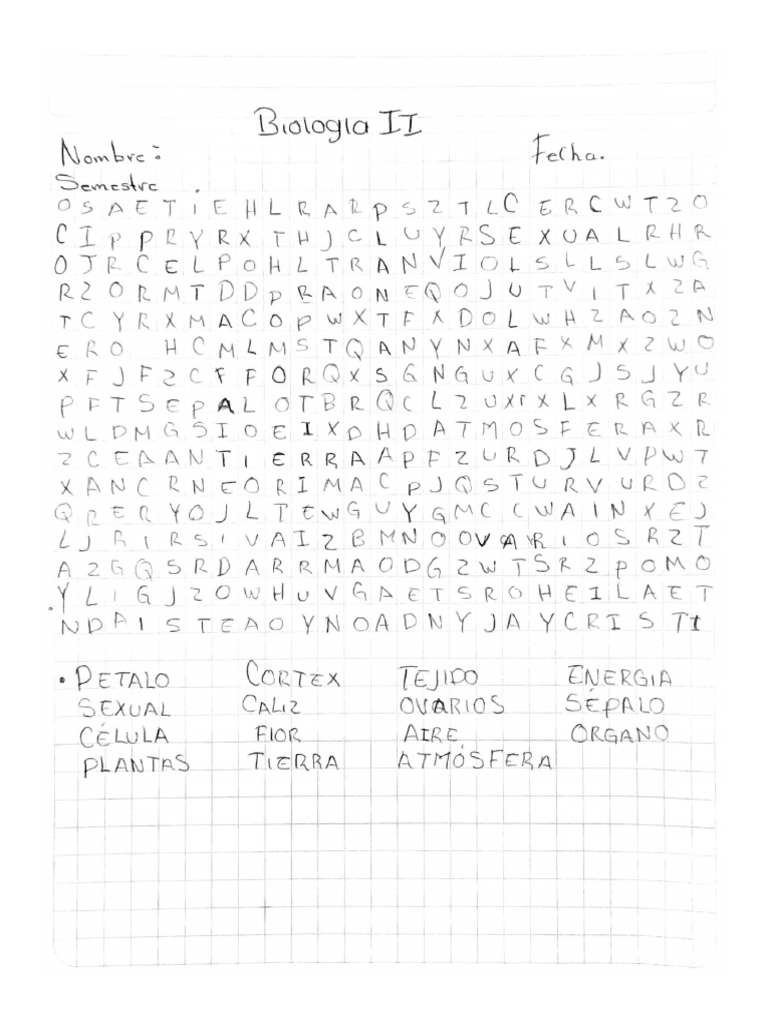 Biologia II
Nombre: Fecha.
Semestre .
O S A E T I E H L R A R P S Z T L C E R C W T Z O
C I P P R Y R X T H J C L U Y R S E X U A L R H R
O J R C E L P O H L T R A N V I O L S L L S L W G
R Z O R M T D D P R A O N E Q O J U T V I T X Z A
T C Y R X M A C O P W X T F X D O L W H Z A O Z N
E R O H C M L M S T Q A N Y N X A F X M X Z W O
X F J F Z C F F O R Q X S G N G U X C G J S J Y U
P F T S E P A L O T B R Q C L Z U X r X L X R G Z R
W L D M G S I O E I X D H D A T M O S F E R A X R
Z C E A A N T I E R R A A P F Z U R D J L V P W T
X A N C R N E O R I M A C P J Q S T U R V U R D Z
Q R E R Y O J L T E W G U Y G M C C W A I N X E J
L J R I R S I V A I Z B M N O O V A R I O S R Z T
A Z G Q S R D A R R M A O D G Z W T S R Z P O M O
Y L I G J Z O W H U V G A E T S R O H E I L A E T
N D A I S T E A O Y N O A D N Y J A Y C R I S T I
• PETALO CORTEX TEJIDO ENERGIA
SEXUAL CALIZ OVARIOS SÉPALO
CÉLULA FlOR AIRE ORGANO
PLANTAS TIERRA ATMÓSFERA